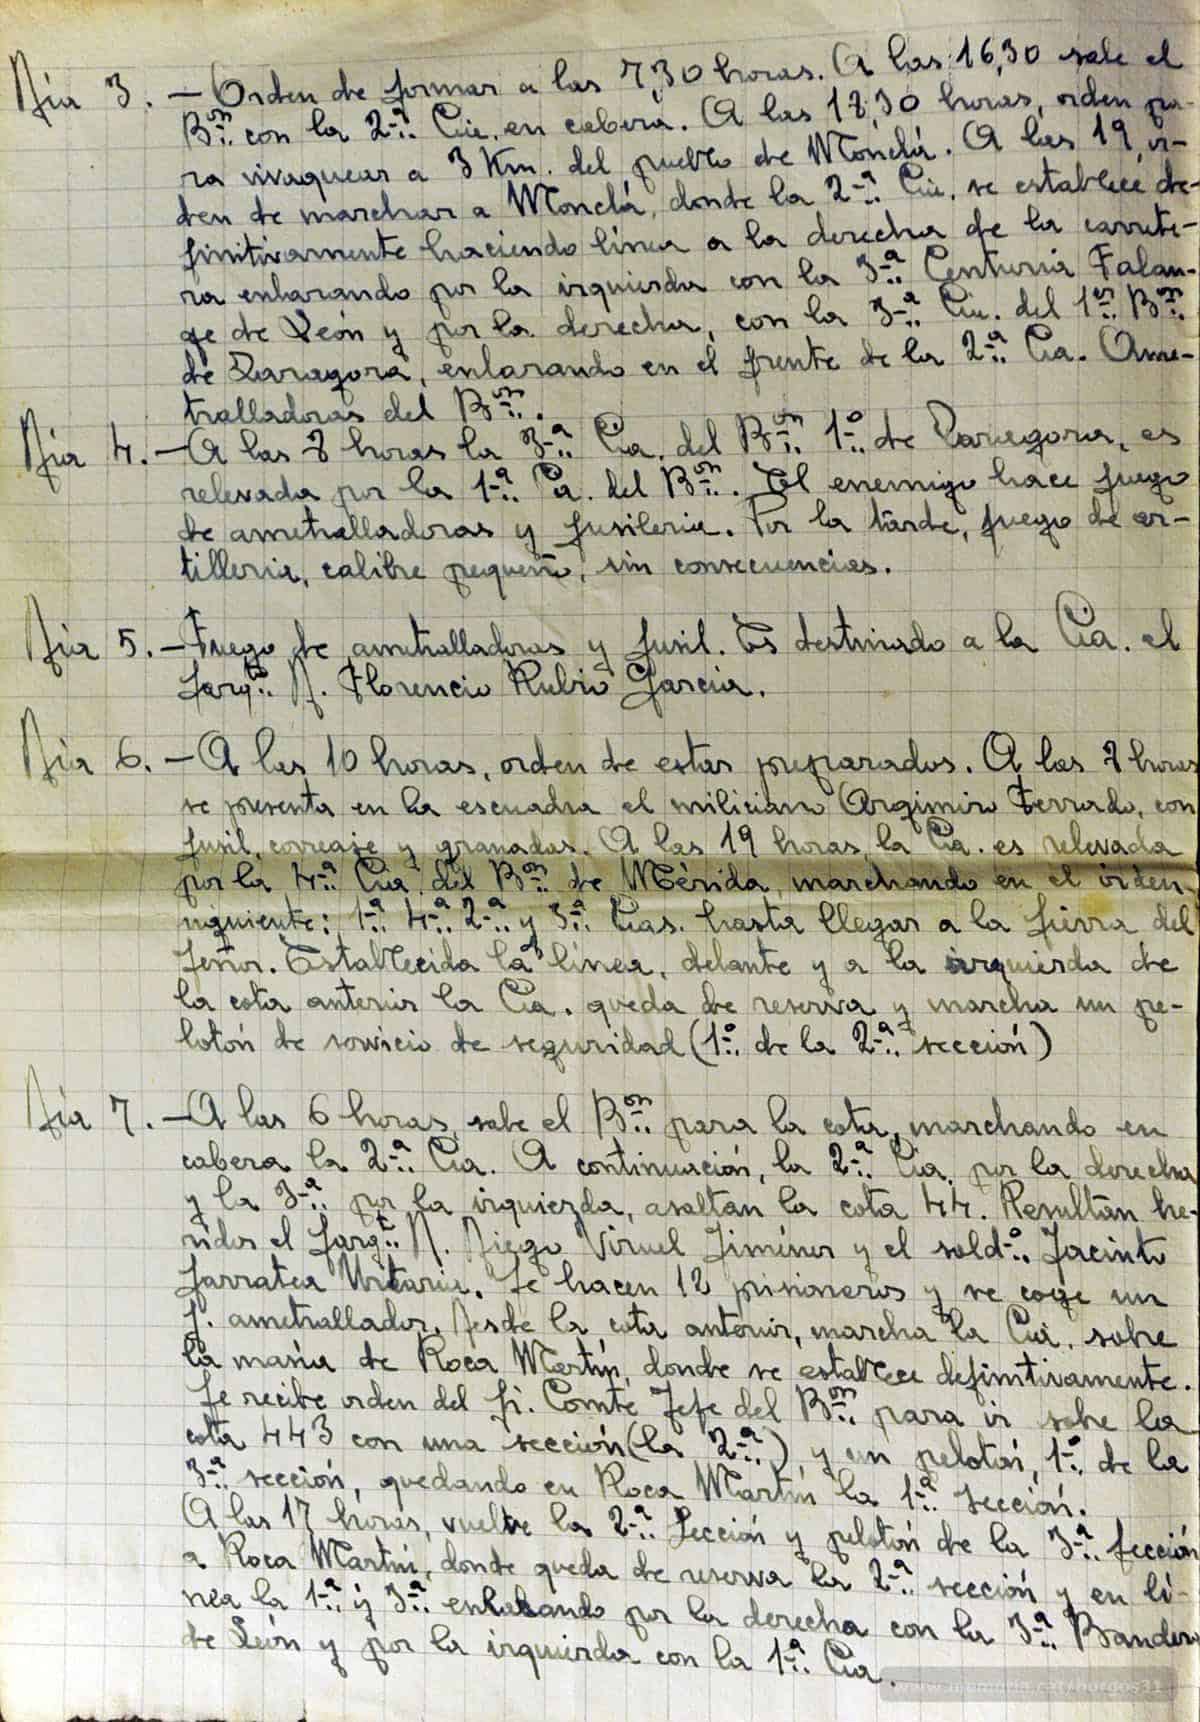 Día 3. — Orden de formar a las 7,30 horas. A las 16,30 sale el
Bon.. con la 2ª.. Cia. en cabeza. A las 18,30 horas, orden pa-
ra vivaquear a 3 Km. del pueblo de Monclá. A las 19, or-
den de marchar a Monclá, donde la 2ª.. Cia. se establece de-
finitivamente haciendo línea a la derecha de la carrete-
ra enlazando por la izquierda con la 3ª.. Centuria Falan-
ge de León y por la derecha, con la 3ª.. Cia. del 1er.. Bon..
de Zaragoza, enlazando en el frente de la 2ª.. Cia. Ame-
tralladoras del Bon...
Día 4. — A las 8 horas la 3ª.. Cia. del Bon.. 1º.. de Zaragoza, es
relevada por la 1ª.. Cia. del Bon... El enemigo hace fuego
de ametralladoras y fusileria. Por la tarde, fuego de ar-
tilleria, calibre pequeño, sin consecuencias.
Día 5. — Fuego de ametralladoras y fusil. Es destinado a la Cia. el
Sargto.. D. Florencio Rubio Garcia.
Día 6. — A las 10 horas, orden de estar preparados. A las 8 horas
se presenta en la escuadra el miliciano Argimiro Ferrado, con
fusil, correaje y granadas. A las 19 horas, la Cia. es relevada
por la 4ª.. Cia. del Bon.. de Mérida, marchando en el orden
siguiente: 1ª.. 4ª.. 2ª.. y 3ª.. Cias. hasta llegar a la Sierra del
Señor. Establecida la línea, delante y a la izquierda de
la cota anterior la Cia. queda de reserva y marcha un pe-
lotón de servicio de seguridad (1º.. de la 2ª.. sección)
Día 7. — A las 6 horas, sale el Bon.. para la cota, marchando en
cabeza la 2ª.. Cia. A continuación, la 2ª.. Cia. por la derecha
y la 3ª.. por la izquiezda, asaltan la cota 44. Resultan he-
ridos el Sargt.. D. Diego Viruel Jiménez y el soldº.. Jacinto
Sarratea. Se hacen 12 prisioneros y se coge un
f. ametrallador. Desde la cota anterior, marcha la Cia. sobre
la masía de Roca Martín, donde se establece definitivamente.
Se recibe orden del Sr. Comte Jefe del Bon.. para ir sobre la
cota 443 con una sección (la 2ª..) y un pelotón, 1º.. de la
3ª.. sección, quedando en Roca Martín la 1ª.. sección.
A las 17 horas, vuelve la 2ª.. Sección y pelotón de la 3ª.. Sección
a Roca Martín, donde queda de reserva la 2ª.. sección y en lí-
nea la 1ª.. y 3ª.. enlazando por la derecha con la 3ª.. Bandera
de León y por la izquierda con la 1ª.. Cia.
www.memoria.cat/burgos31